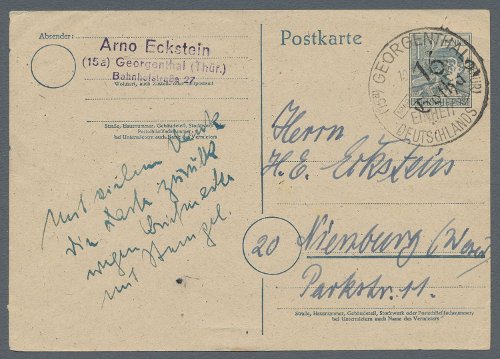 Absender:
Arno Eckstein
(15a) Georgenthal (Thür.)
Bahnhofstraße 27
Wohnort, auch Zustell- oder Leitpostamt
Straße, Hausnummer, Gebäudeteil, Stockwerk oder
Postschließfachnummer
bei Untermietern auch Name des Vermieters
Mit vielem Dank
die Karte zurück
wegen Briefmarke
mit Stempel.
Postkarte
(15a) GEORGENTHAL (THÜR)
EINHEIT
DEUTSCHLANDS
16
Herrn
H. E. Eckstein
20
Nienburg (Weser)
Parkstr. 11.
Straße, Hausnummer, Gebäudeteil, Stockwerk oder Postschließfachnummer,
bei Untermietern auch Name des Vermieters